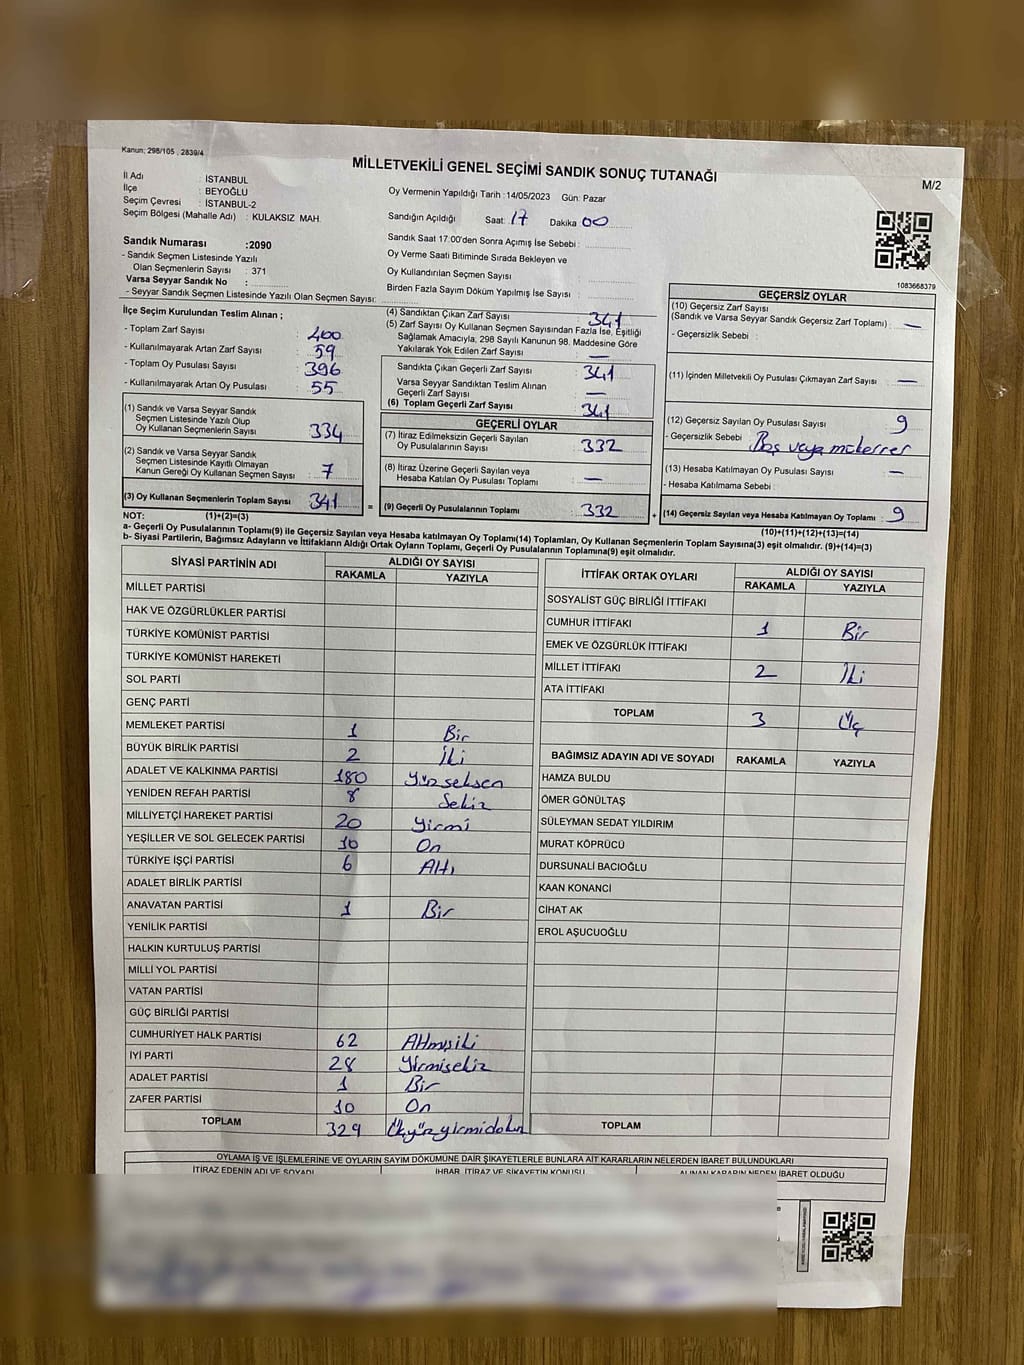 Kanun: 298/105 , 2839/4
MİLLETVEKİLİ GENEL SEÇİMİ SANDIK SONUÇ TUTANAĞI
M/2
İl Adı : İSTANBUL
İlçe : BEYOĞLU
Seçim Çevresi : İSTANBUL-2
Seçim Bölgesi (Mahalle Adı) : KULAKSIZ MAH.
Oy Vermenin Yapıldığı Tarih :14/05/2023 Gün: Pazar
Sandığın Açıldığı Saat: 17 Dakika 00
Sandık Saat 17:00'den Sonra Açımış İse Sebebi :
Oy Verme Saati Bitiminde Sırada Bekleyen ve
Oy Kullandırılan Seçmen Sayısı
Birden Fazla Sayım Döküm Yapılmış İse Sayısı :
Sandık Numarası :2090
- Sandık Seçmen Listesinde Yazılı
Olan Seçmenlerin Sayısı : 371
Varsa Seyyar Sandık No :
- Seyyar Sandık Seçmen Listesinde Yazılı Olan Seçmen Sayısı:
1083668379
İlçe Seçim Kurulundan Teslim Alınan ;
- Toplam Zarf Sayısı 400
- Kullanılmayarak Artan Zarf Sayısı 59
- Toplam Oy Pusulası Sayısı 396
- Kullanılmayarak Artan Oy Pusulası 55
(1) Sandık ve Varsa Seyyar Sandık
Seçmen Listesinde Yazılı Olup
Oy Kullanan Seçmenlerin Sayısı 334
(2) Sandık ve Varsa Seyyar Sandık
Seçmen Listesinde Kayıtlı Olmayan
Kanun Gereği Oy Kullanan Seçmen Sayısı 7
(3) Oy Kullanan Seçmenlerin Toplam Sayısı 341 =
(4) Sandıktan Çıkan Zarf Sayısı 341
(5) Zarf Sayısı Oy Kullanan Seçmen Sayısından Fazla İse, Eşitliği
Sağlamak Amacıyla, 298 Sayılı Kanunun 98. Maddesine Göre
Yakılarak Yok Edilen Zarf Sayısı —
Sandıkta Çıkan Geçerli Zarf Sayısı 341
Varsa Seyyar Sandıktan Teslim Alınan
Geçerli Zarf Sayısı —
(6) Toplam Geçerli Zarf Sayısı 341
GEÇERLİ OYLAR
(7) İtiraz Edilmeksizin Geçerli Sayılan
Oy Pusulalarının Sayısı 332
(8) İtiraz Üzerine Geçerli Sayılan veya
Hesaba Katılan Oy Pusulası Toplamı —
(9) Geçerli Oy Pusulalarının Toplamı 332 +
GEÇERSİZ OYLAR
(10) Geçersiz Zarf Sayısı
(Sandık ve Varsa Seyyar Sandık Geçersiz Zarf Toplamı) : —
- Geçersizlik Sebebi :
(11) İçinden Milletvekili Oy Pusulası Çıkmayan Zarf Sayısı : —
(12) Geçersiz Sayılan Oy Pusulası Sayısı : 9
- Geçersizlik Sebebi : Boş veya mükerrer
(13) Hesaba Katılmayan Oy Pusulası Sayısı : —
- Hesaba Katılmama Sebebi :
(14) Geçersiz Sayılan veya Hesaba Katılmayan Oy Toplamı : 9
NOT: (1)+(2)=(3)
(10)+(11)+(12)+(13)=(14)
a- Geçerli Oy Pusulalarının Toplamı(9) ile Geçersiz Sayılan veya Hesaba katılmayan Oy Toplamı(14) Toplamları, Oy Kullanan Seçmenlerin Toplam Sayısına(3) eşit olmalıdır. (9)+(14)=(3)
b- Siyasi Partilerin, Bağımsız Adayların ve İttifakların Aldığı Ortak Oyların Toplamı, Geçerli Oy Pusulalarının Toplamına(9) eşit olmalıdır.
SİYASİ PARTİNİN ADI ALDIĞI OY SAYISI
RAKAMLA YAZIYLA
MİLLET PARTİSİ
HAK VE ÖZGÜRLÜKLER PARTİSİ
TÜRKİYE KOMÜNİST PARTİSİ
TÜRKİYE KOMÜNİST HAREKETİ
SOL PARTİ
GENÇ PARTİ
MEMLEKET PARTİSİ 1 Bir
BÜYÜK BİRLİK PARTİSİ 2 İki
ADALET VE KALKINMA PARTİSİ 180 Yüzseksen
YENİDEN REFAH PARTİSİ 8 Sekiz
MİLLİYETÇİ HAREKET PARTİSİ 20 Yirmi
YEŞİLLER VE SOL GELECEK PARTİSİ 10 On
TÜRKİYE İŞÇİ PARTİSİ 6 Altı
ADALET BİRLİK PARTİSİ
ANAVATAN PARTİSİ 1 Bir
YENİLİK PARTİSİ
HALKIN KURTULUŞ PARTİSİ
MİLLİ YOL PARTİSİ
VATAN PARTİSİ
GÜÇ BİRLİĞİ PARTİSİ
CUMHURİYET HALK PARTİSİ 62 Altmışiki
İYİ PARTİ 28 Yirmisekiz
ADALET PARTİSİ 1 Bir
ZAFER PARTİSİ 10 On
TOPLAM 329 Üçyüzyirmidokuz
İTTİFAK ORTAK OYLARI ALDIĞI OY SAYISI
RAKAMLA YAZIYLA
SOSYALİST GÜÇ BİRLİĞİ İTTİFAKI
CUMHUR İTTİFAKI 1 Bir
EMEK VE ÖZGÜRLÜK İTTİFAKI
MİLLET İTTİFAKI 2 İki
ATA İTTİFAKI
TOPLAM 3 Üç
BAĞIMSIZ ADAYIN ADI VE SOYADI RAKAMLA YAZIYLA
HAMZA BULDU
ÖMER GÖNÜLTAŞ
SÜLEYMAN SEDAT YILDIRIM
MURAT KÖPRÜCÜ
DURSUNALİ BACIOĞLU
KAAN KONANCI
CİHAT AK
EROL AŞUCUOĞLU
TOPLAM
OYLAMA İŞ VE İŞLEMLERİNE VE OYLARIN SAYIM DÖKÜMÜNE DAİR ŞİKAYETLERLE BUNLARA AİT KARARLARIN NELERDEN İBARET BULUNDUKLARI
İTİRAZ EDENİN ADI VE SOYADI İHBAR, İTİRAZ VE ŞİKAYETİN KONUSU ALINAN KARARIN NEDEN İBARET OLDUĞU